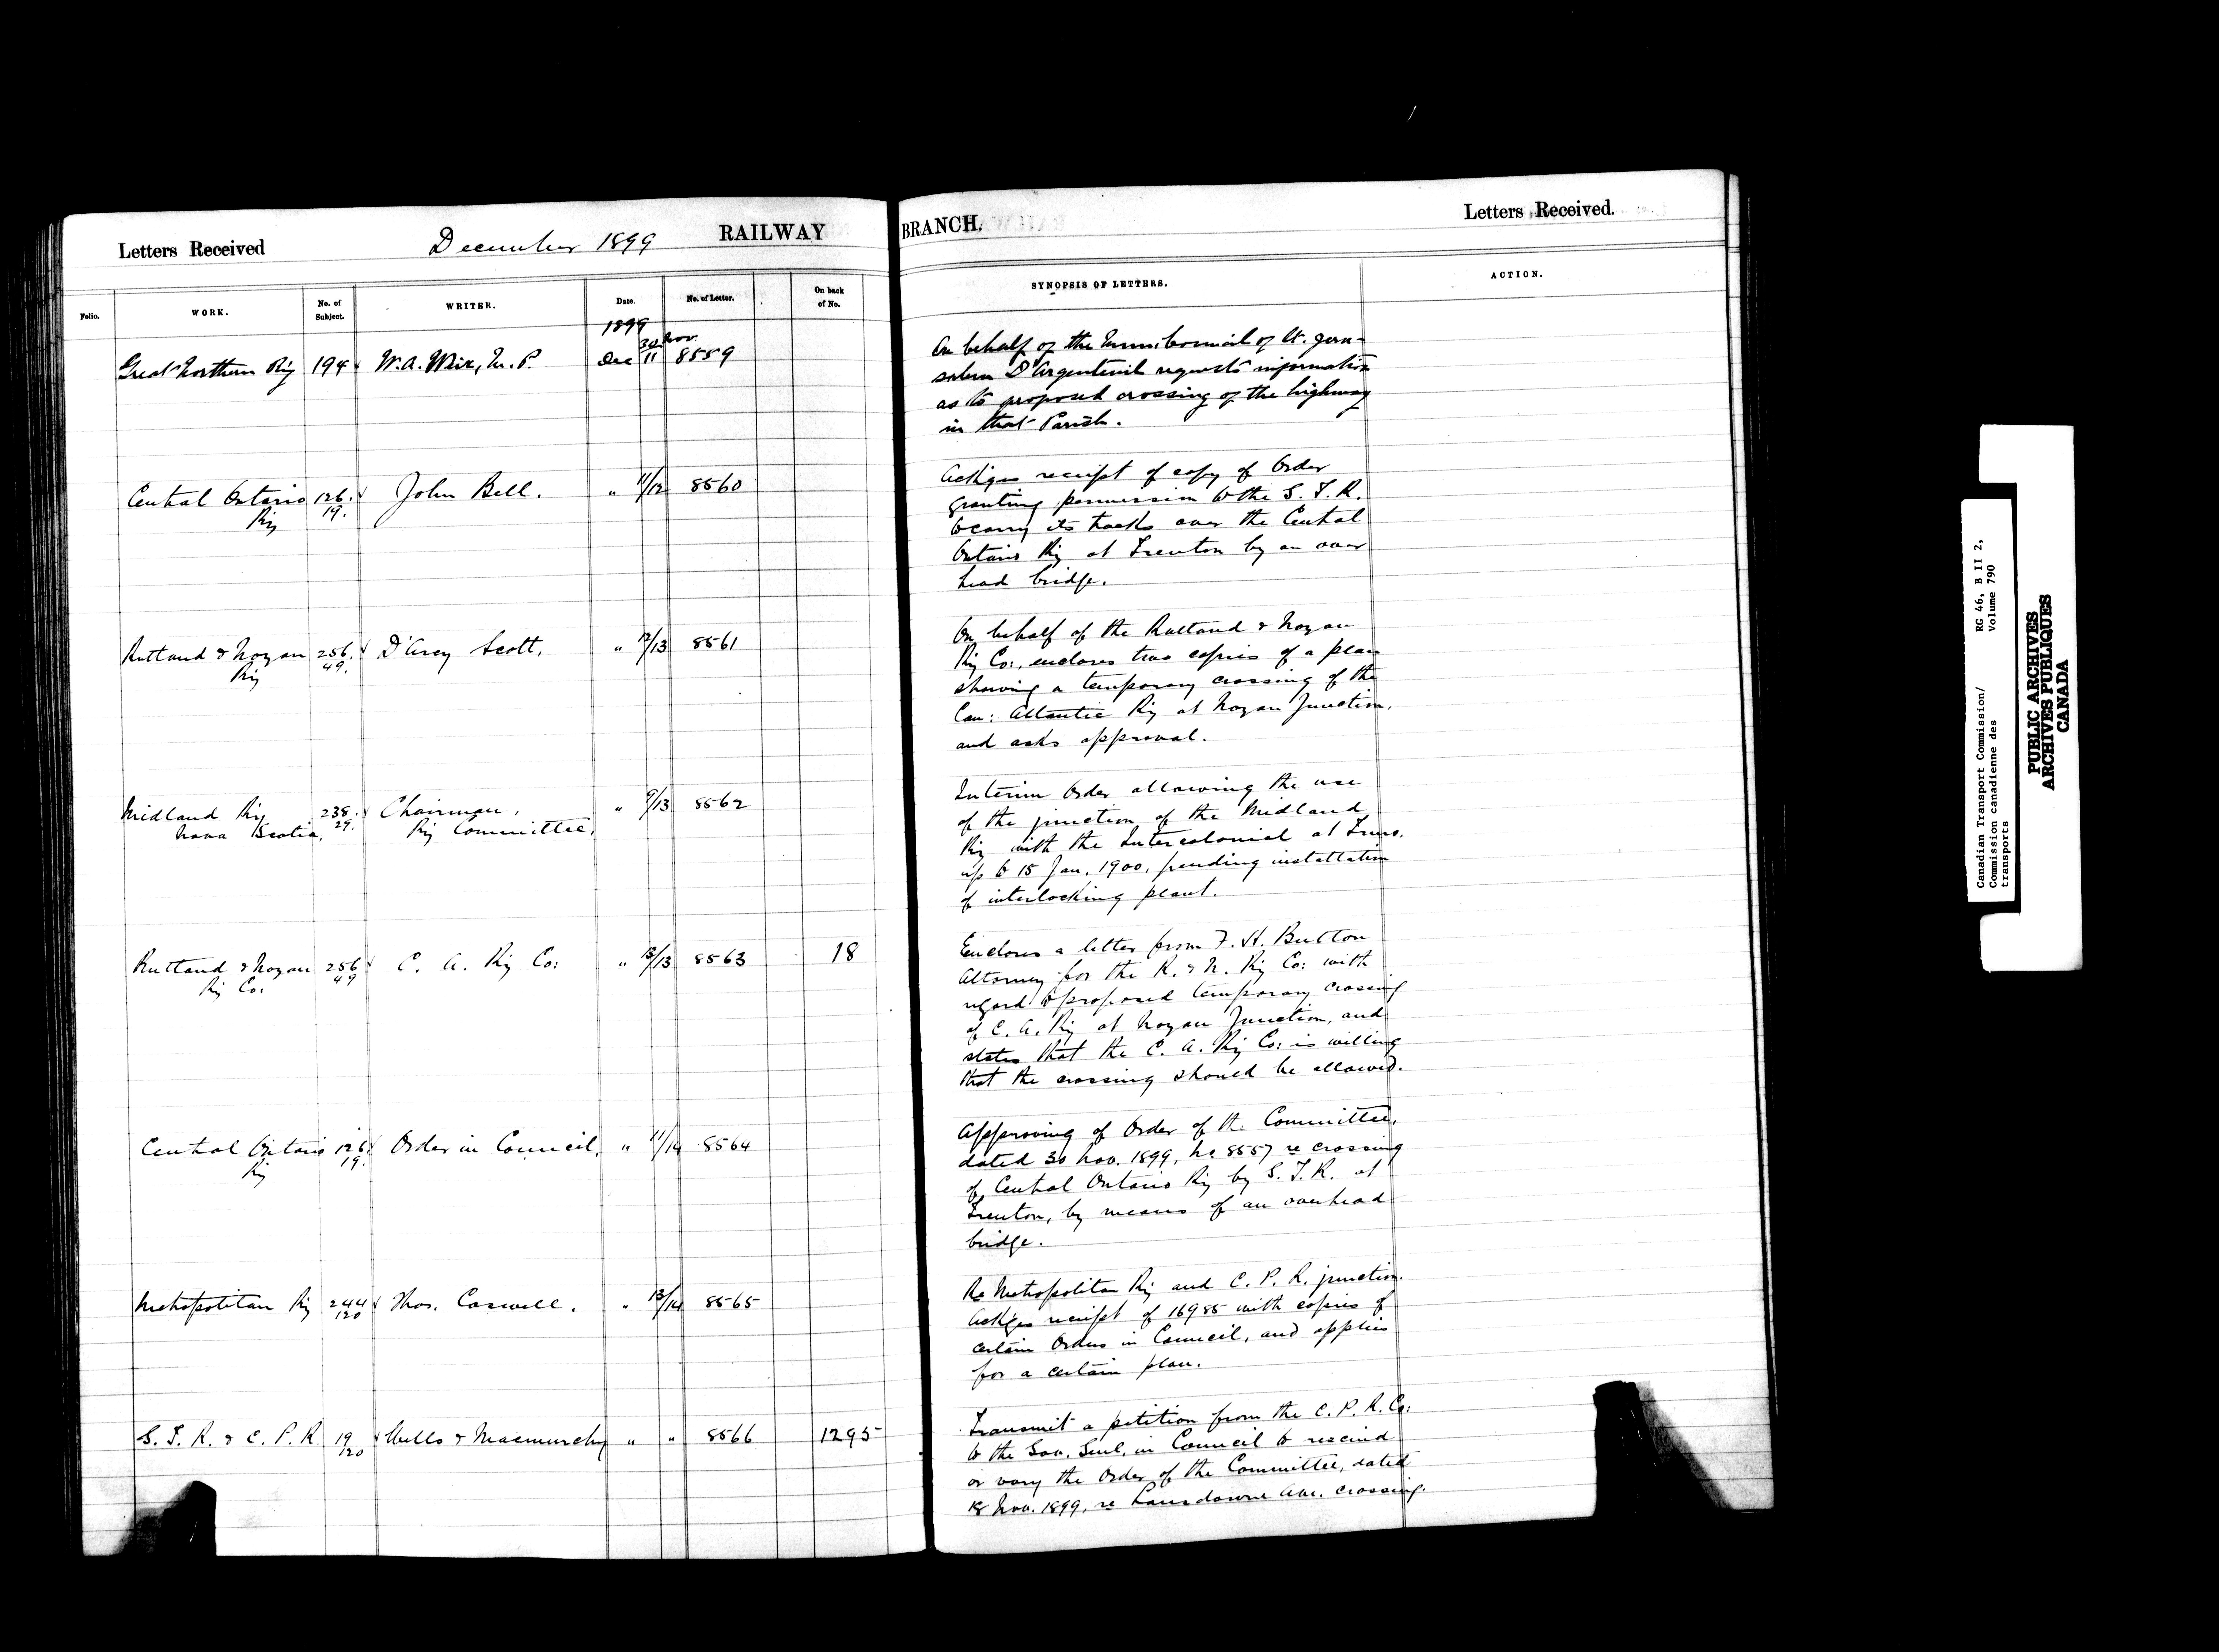 Letters Received
December 1899
RAILWAY
BRANCH.
Letters Received.
Folio.
WORK.
No. of Subject.
WRITER.
Date.
No. of Letter.
On back of No.
SYNOPSIS OF LETTERS.
ACTION.
1899
Great Northern Ry 194 W. A. Weir, M. P. Dec 30 Nov. 11 8559
On behalf of the Muni: Council of St. Jeru-
salem D'Argenteuil requests information
as to proposed crossing of the highway
in that Parish.
Central Ontario 126. John Bell. " 11/12 8560
Ry 19.
Ackges receipt of copy of Order
granting permission to the G. T. R.
to carry its tracks over the Central
Ontario Ry at Trenton by an over
head bridge.
Rutland & Noyan 256. D'Arcy Scott, " 12/13 8561
Ry 49.
On behalf of the Rutland & Noyan
Ry Co:, encloses two copies of a plan
showing a temporary crossing of the
Can: Atlantic Ry at Noyan Junction,
and asks approval.
Midland Ry 238. Chairman, " 9/13 8562
Nova Scotia, 29. Ry Committee,
Interim Order allowing the use
of the junction of the Midland
Ry with the Intercolonial at Truro,
up to 15 Jan. 1900, pending installation
of interlocking plant.
Rutland & Noyan 256 C. A. Ry Co: " /13 8563 18
Ry Co. 49
Encloses a letter from F. H. Button
Attorney for the R. & N. Ry Co: with
regard to proposed temporary crossing
of C. A. Ry at Noyan Junction, and
states that the C. A. Ry Co: is willing
that the crossing should be allowed.
Central Ontario 126. Order in Council, " 11/14 8564
Ry 19.
Approving of Order of the Committee,
dated 30 Nov. 1899, No 8557 re crossing
of Central Ontario Ry by G. T. R. at
Trenton, by means of an overhead
bridge.
Metropolitan Ry 244 Thos. Caswell. " 13/14 8565
120
Re Metropolitan Ry and C. P. R. junction.
Ackges receipt of 16985 with copies of
certain Orders in Council, and applies
for a certain plan.
G. T. R. & C. P. R. 19 Wells & Macmurchy " " 8566 1295
120
Transmit a petition from the C. P. R. Co:
to the Gov. Genl. in Council to rescind
or vary the Order of the Committee, dated
18 Nov. 1899, re Lansdowne Ave. crossing.
Canadian Transport Commission/ RG 46, B II 2,
Commission canadienne des Volume 790
transports
PUBLIC ARCHIVES
ARCHIVES PUBLIQUES
CANADA